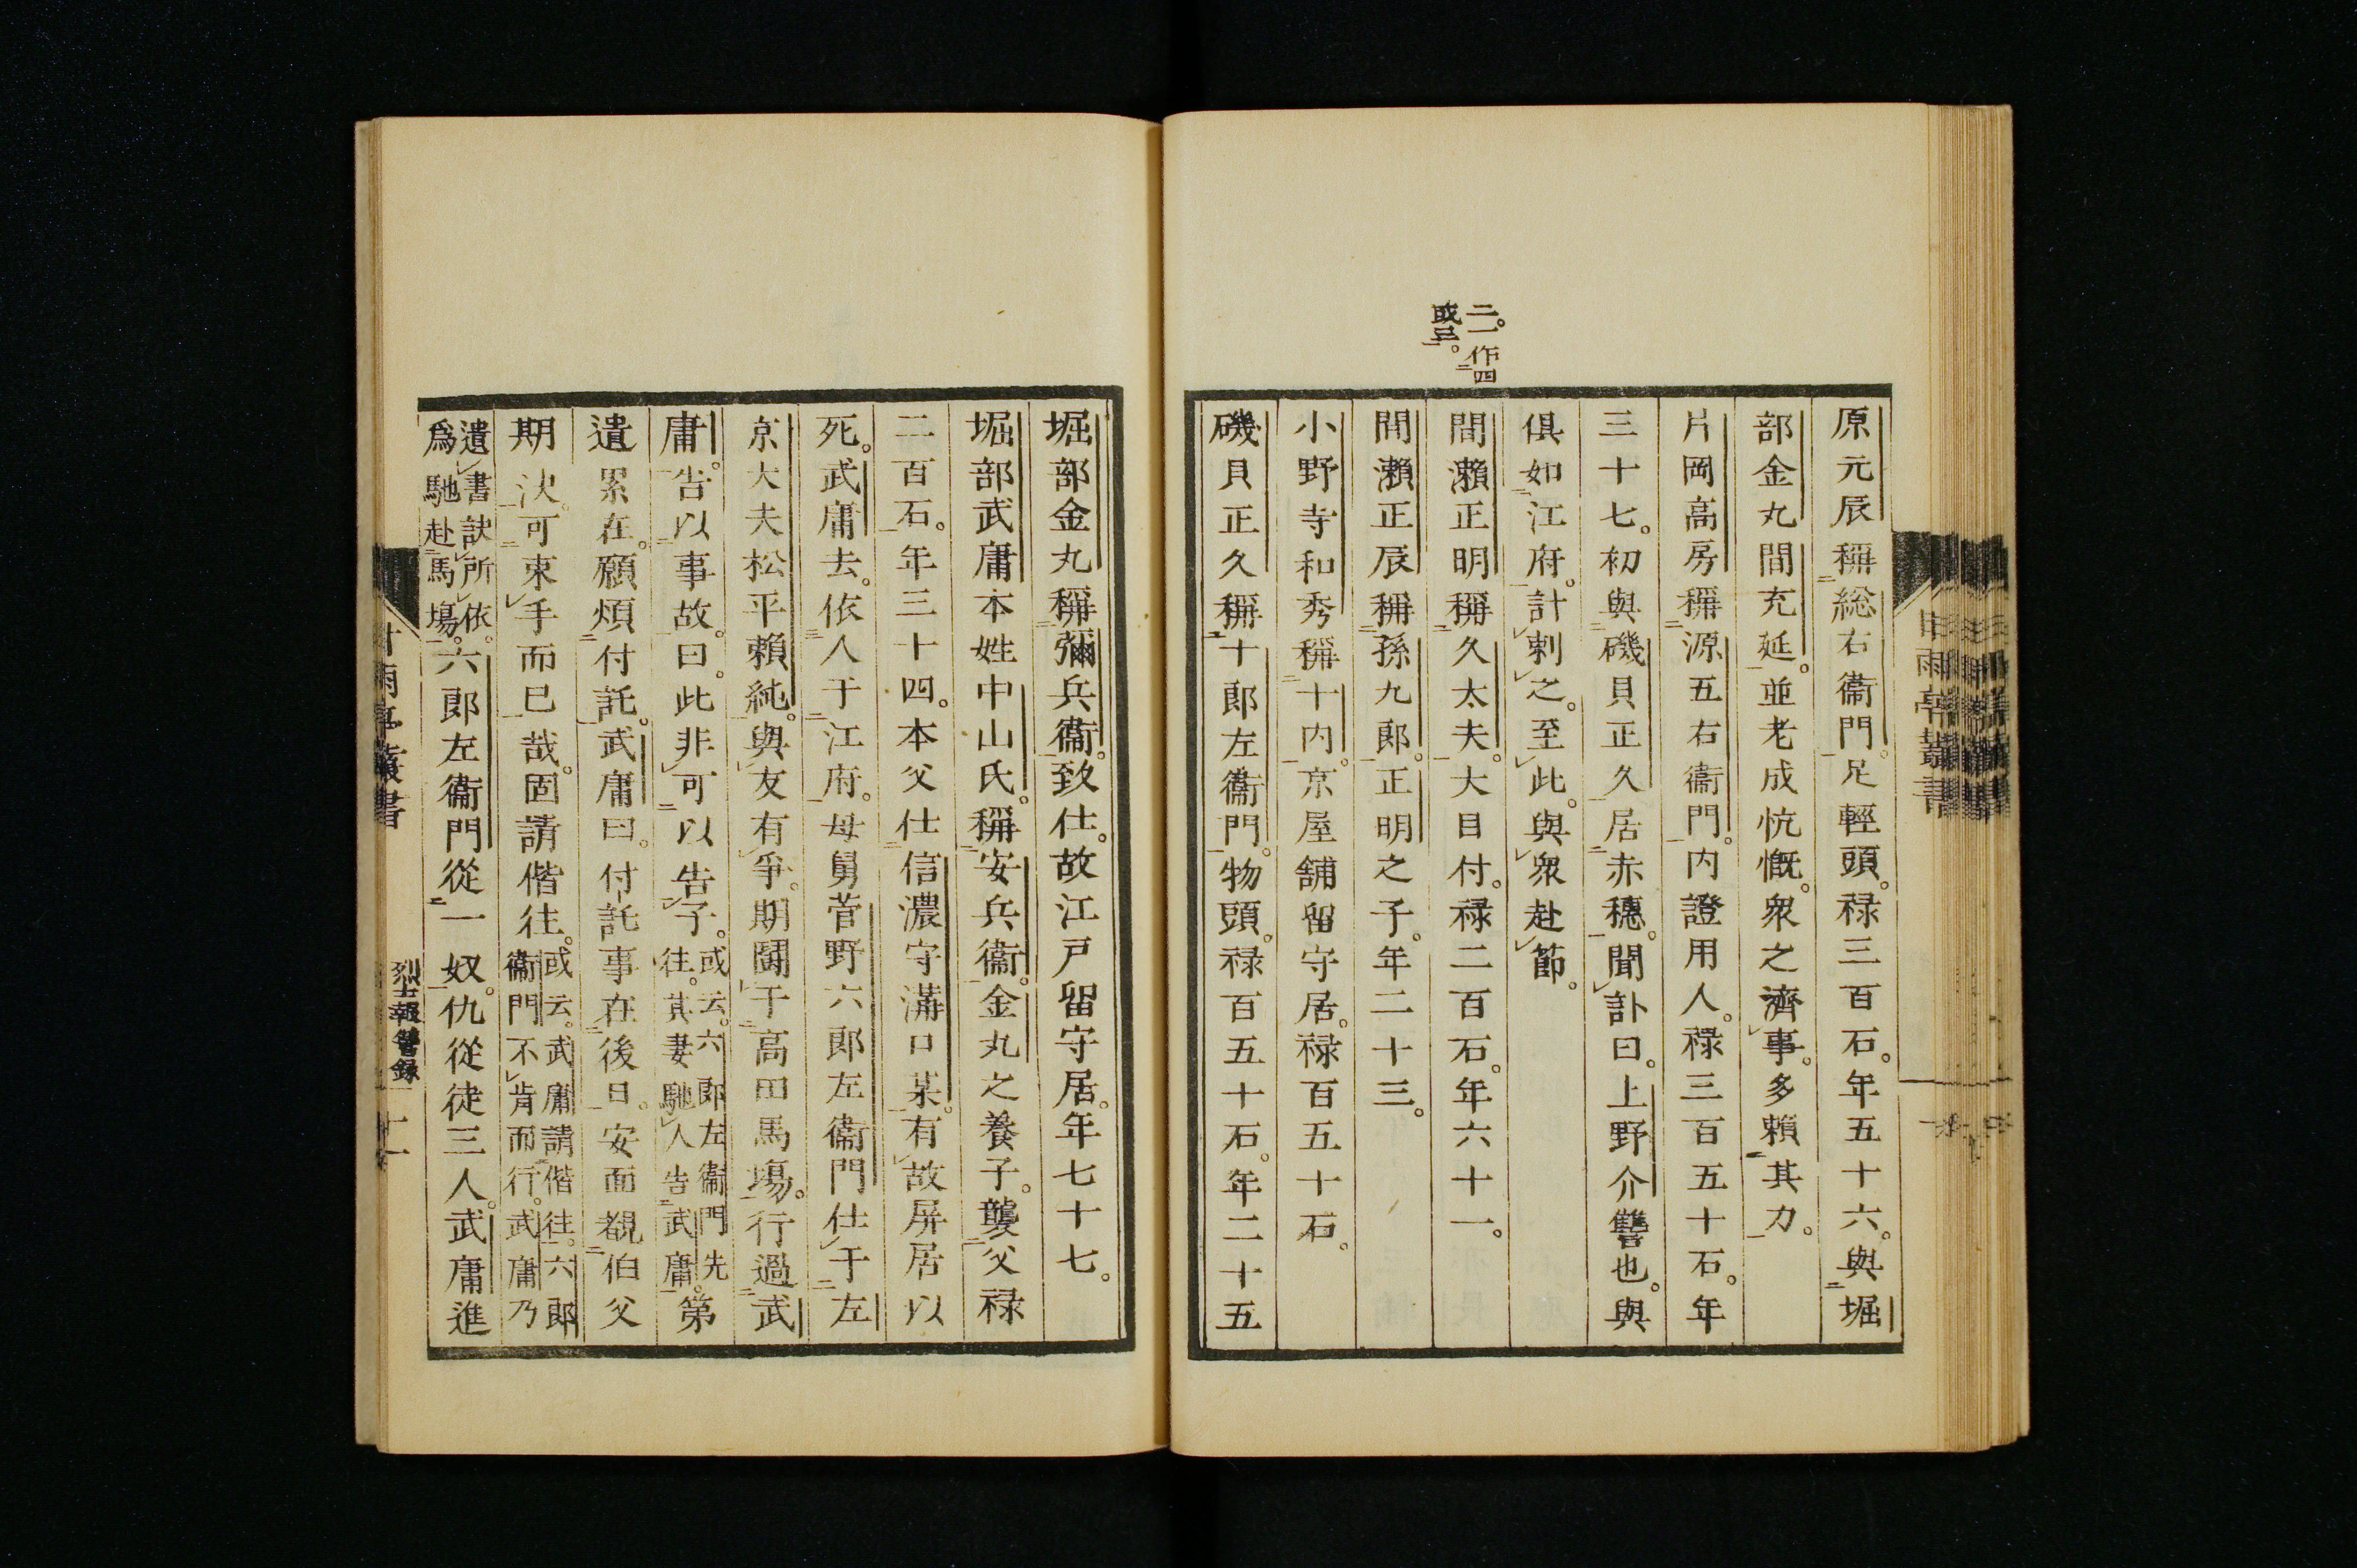 二。一作四
或三。
原元辰稱総右衞門。足輕頭。禄三百石。年五十六。與堀
部金丸間充延。並老成忼慨。衆之濟事。多賴其力。
片岡高房稱源五右衞門。内證用人。禄三百五十石。年
三十七。初與磯貝正久居赤穗。聞訃曰。上野介讐也。與
俱如江府。計刺之。至此。與衆赴節。
間瀨正明稱久太夫。大目付。禄二百石。年六十一。
間瀨正辰稱孫九郎。正明之子。年二十三。
小野寺和秀稱十内。京屋舖留守居。禄百五十石。
磯貝正久稱十郎左衞門。物頭。禄百五十石。年二十五
堀部金丸稱彌兵衞。致仕。故江戸留守居。年七十七。
堀部武庸本姓中山氏。稱安兵衞。金丸之養子。襲父禄
二百石。年三十四。本父仕信濃守溝口某。有故屏居以
死。武庸去。依人于江府。母舅菅野六郎左衞門仕于左
京大夫松平賴純。與友有爭。期鬪于高田馬塲。行過武
庸。告以事故。曰。此非可以告子。或云。六郎左衞門先
往。其妻馳人告武庸。第
遺累在。願煩付託。武庸曰。付託事在後日。安面覩伯父
期決。可束手而已哉。固請偕往。或云。武庸請偕往。六郎
衞門不肯而行。武庸乃
遺書訣所依。
爲馳赴馬塲。六郎左衞門從一奴。仇從徒三人。武庸進
甘雨亭叢書
烈士報讐録
甘雨亭叢書